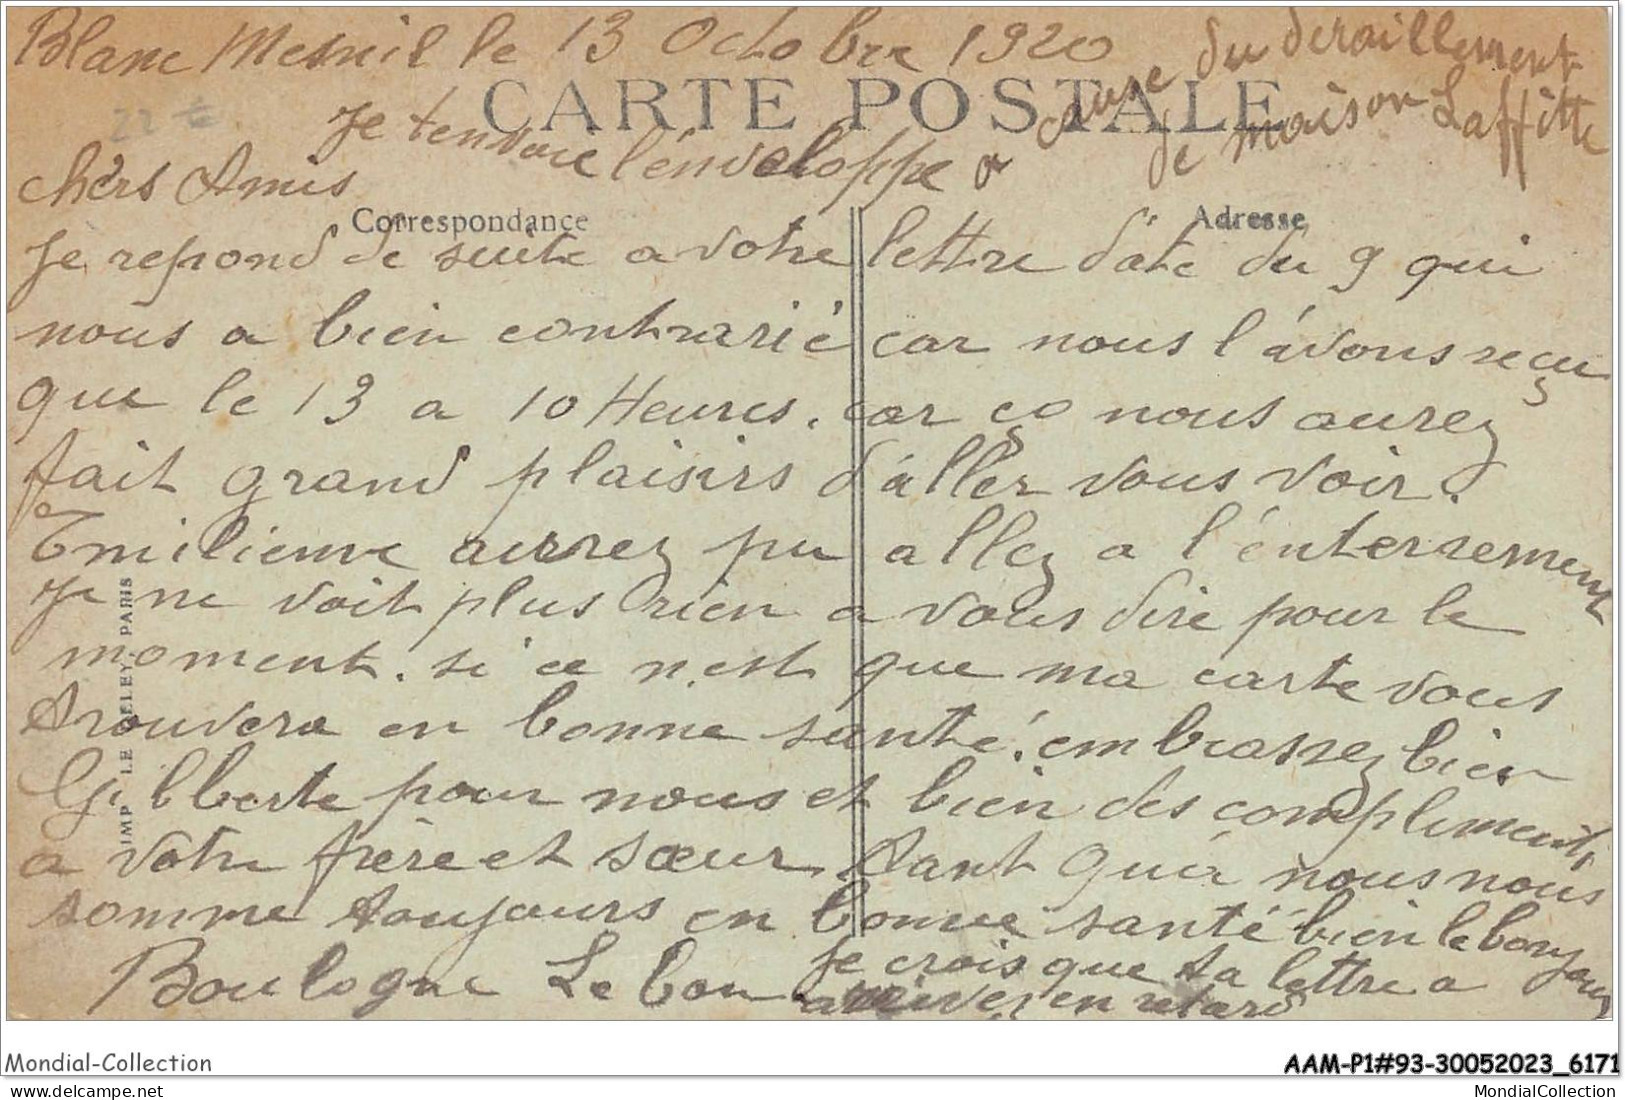 Blanc Mesnil le 13 Octobre 1920
CARTE POSTALE
chèrs Amis
Je tenvoie l'énveloppe a cause du deraillement
de maison Laffitte
Correspondance
Adresse
Je repond de suite a votre lettre date du 9 qui
nous a bien contrarié car nous l'ávons reçu
que le 13 a 10 Heures. car ço nous aurez
fait grand plaisirs d'áller vous voir.
Emilienne aurrez pu allez a l'énterrement
Je ne voit plus rien a vous dire pour le
moment. si ce n'est que ma carte vous
trouvera en bonne santé. embrassez bien
Gilberte pour nous et bien des compliments
a votre frère et sœur. tant qu'á nous nous
somme toujours en bonne santé bien le bonjour
Boulogne Lebon
Je crois que ta lettre a
arrivez en retard
IMP LE DELEY, PARIS
Mondial-Collection
AAM-P1#93-30052023_6171
www.delcampe.net
MondialCollection